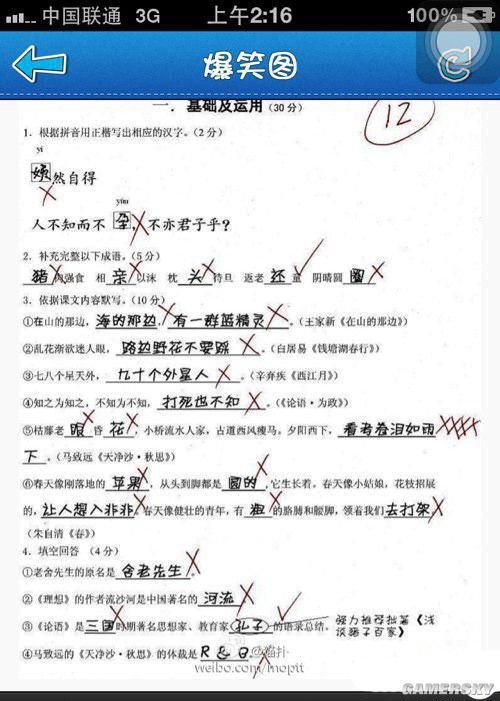 中国联通 3G 上午2:16 100%
爆笑图
一．基础及运用（30分）
12
1．根据拼音用正楷写出相应的汉字。（2分）
yí
然自得
yùn
人不知而不孕，不亦君子乎？
2．补充完整以下成语。（5分）
猪肉强食 相亲以沫 枕头待旦 返老还童 阴晴圆圈
3．依据课文内容默写。（10分）
①在山的那边，海的那边，有一群蓝精灵。（王家新《在山的那边》）
②乱花渐欲迷人眼，路边野花不要踩。（白居易《钱塘湖春行》）
③七八个星天外，九十个外星人。（辛弃疾《西江月》）
④知之为知之，不知为不知，打死也不知。（《论语·为政》）
⑤枯藤老眼昏花，小桥流水人家，古道西风瘦马。夕阳西下，看考卷泪如雨
下。（马致远《天净沙·秋思》）
⑥春天像刚落地的苹果，从头到脚都是圆的，它生长着。春天像小姑娘，花枝招展
的，让人想入非非。春天像健壮的青年，有粗的胳膊和腰脚，领着我们去打架。
（朱自清《春》）
4．填空回答（4分）
①老舍先生的原名是舍老先生。
②《理想》的作者流沙河是中国著名的河流。
③《论语》是三国时期著名思想家、教育家孔子的语录总结。强力推荐拙著《浅
谈诸子百家》
④马致远的《天净沙·秋思》的体裁是R&B。
@猫扑
weibo.com/moptt
GAMERSKY